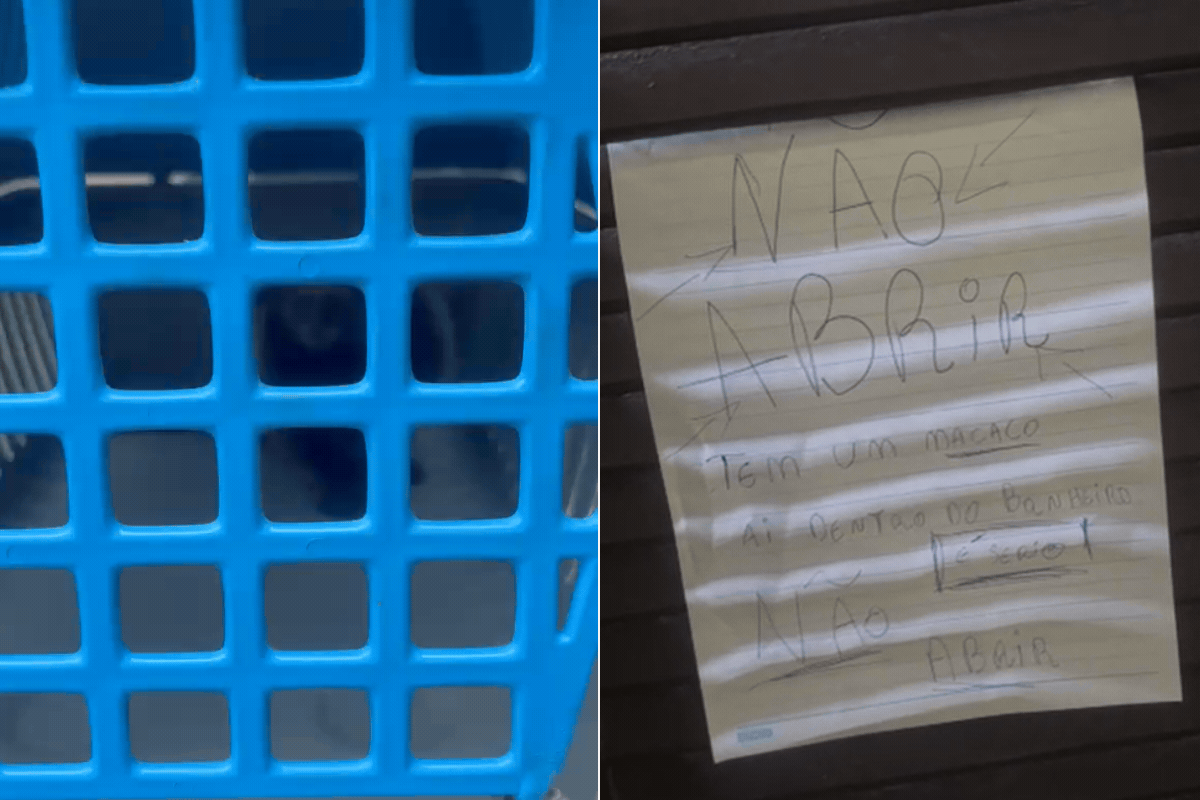 NÃO
ABRIR
TEM UM MACACO
AI DENTRO DO BANHEIRO
É SERIO!
NÃO
ABRIR